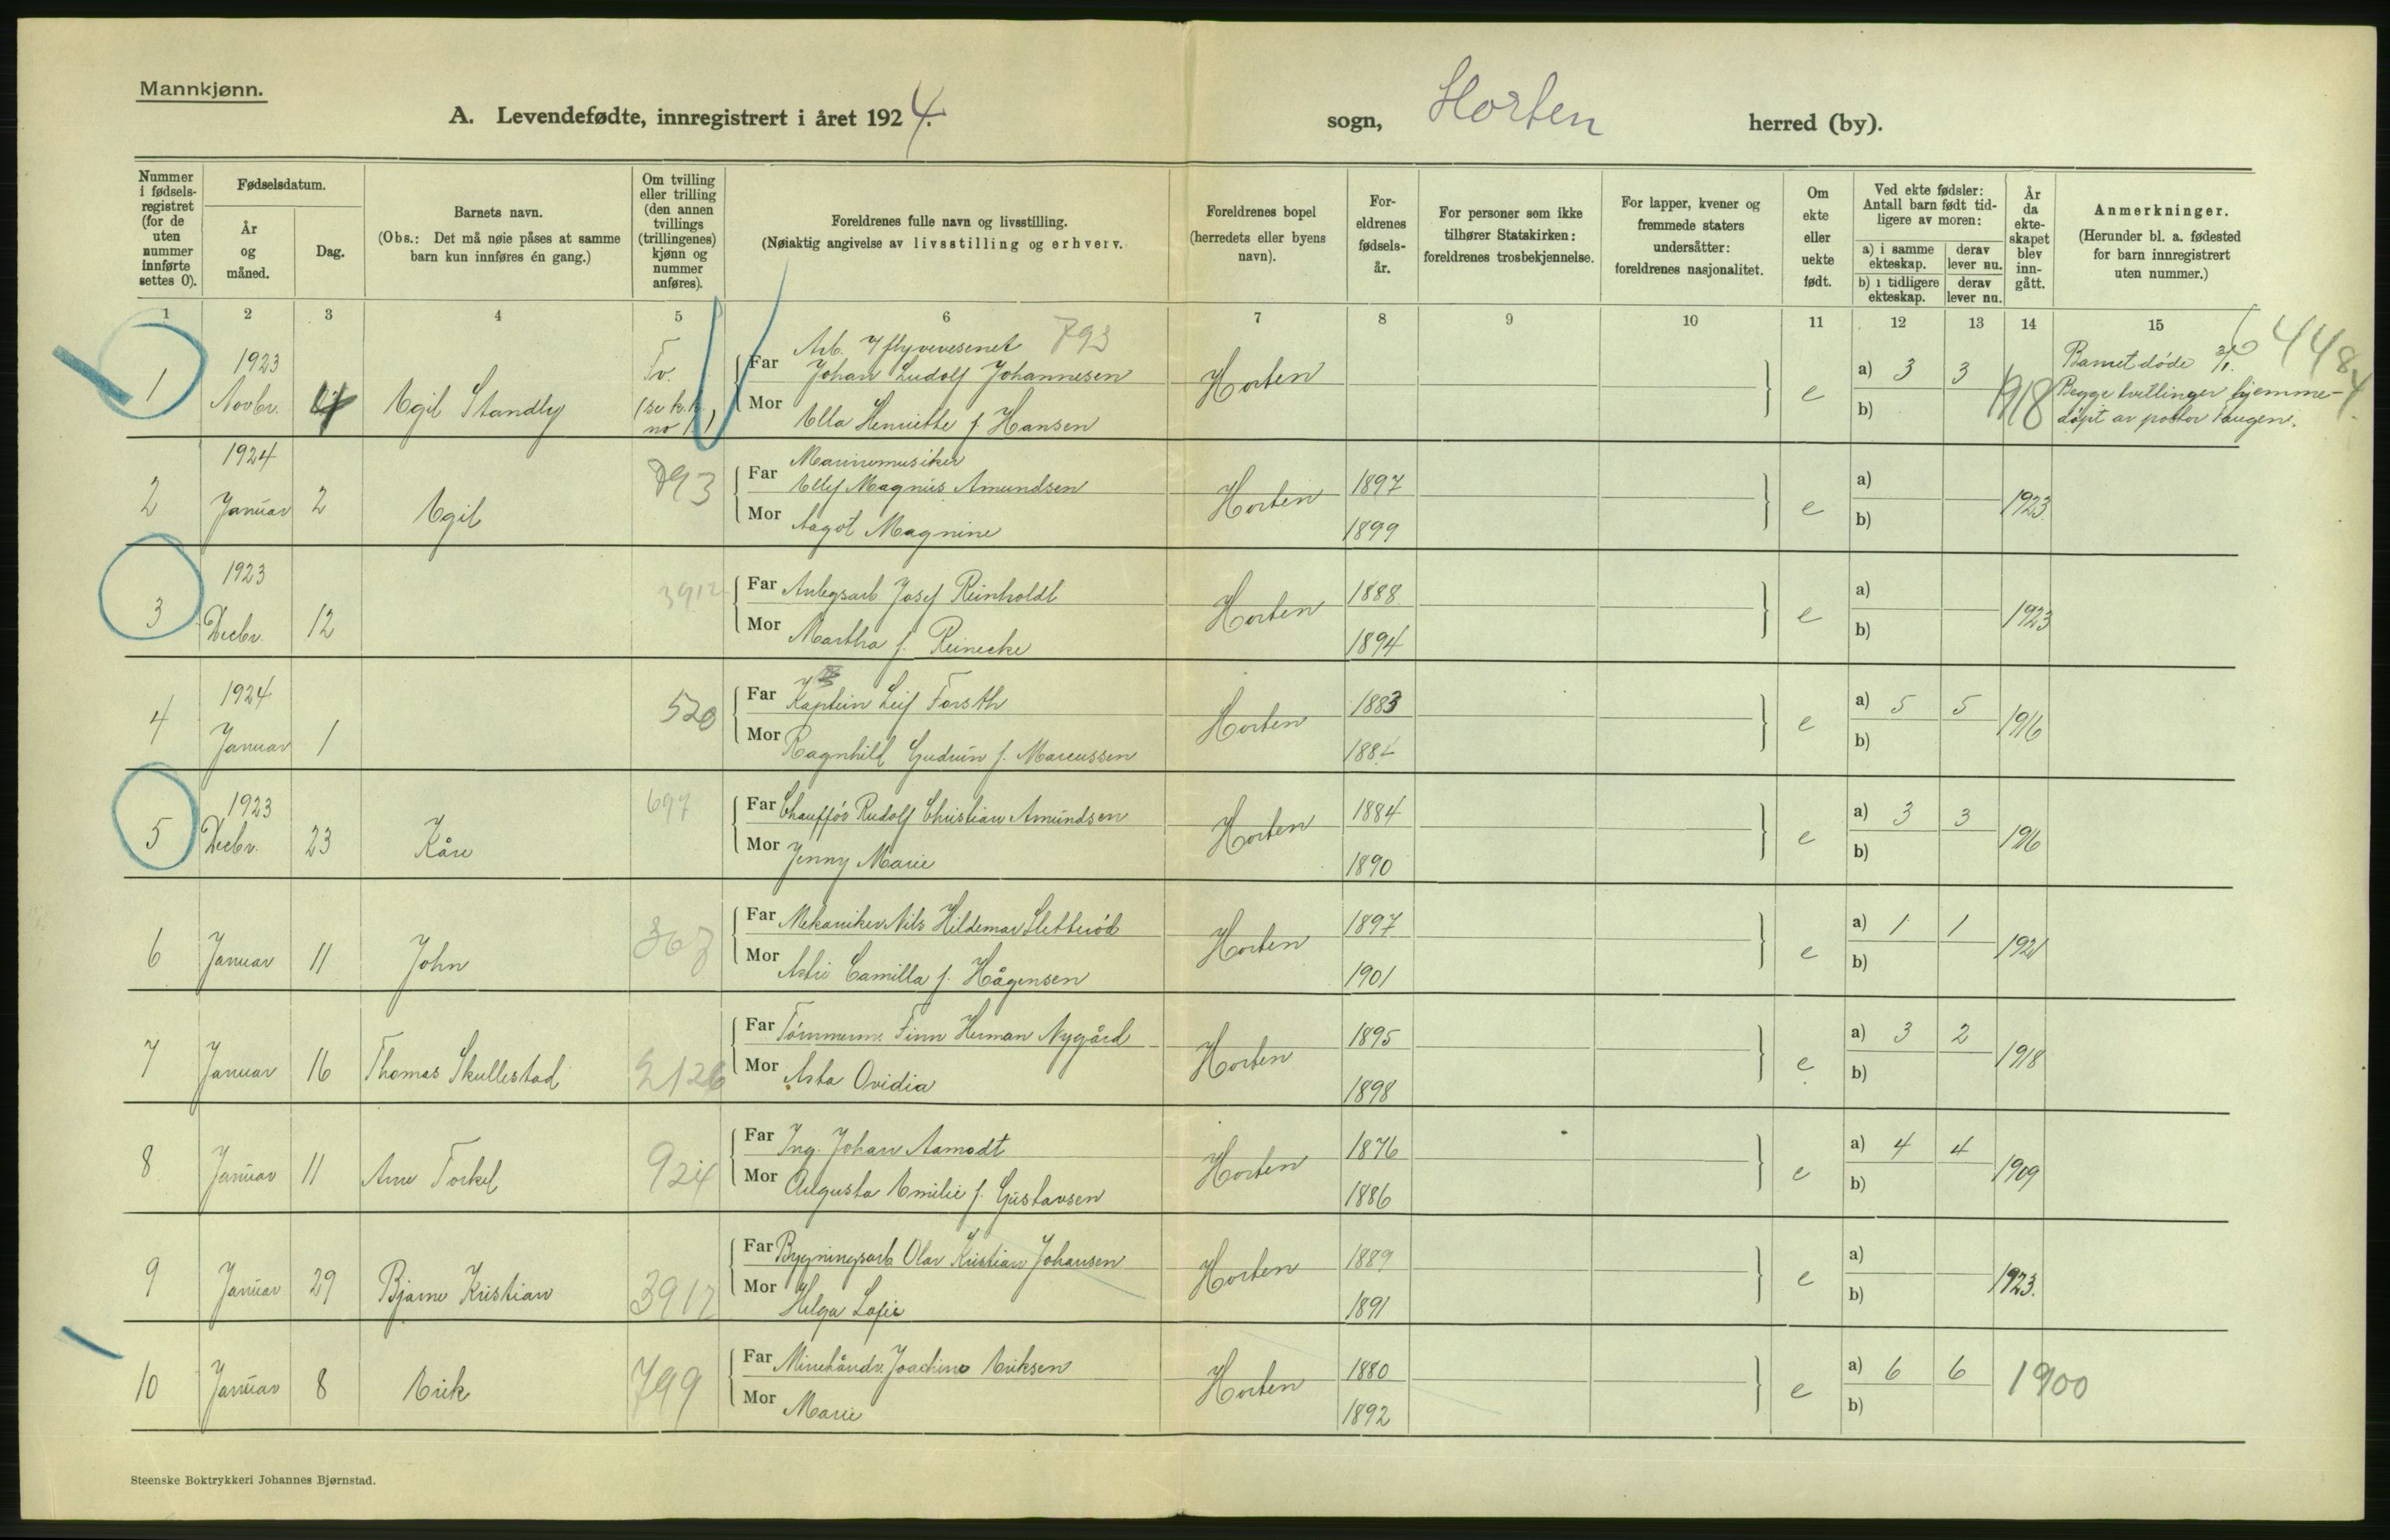 Mannkjønn.
A. Levendefødte, innregistrert i året 1924.
sogn, Horten herred (by).
Nummer i fødsels-registret (for de uten nummer innførte settes 0).
Fødselsdatum.
År og måned.
Dag.
Barnets navn.
(Obs.: Det må nøie påses at samme barn kun innføres én gang.)
Om tvilling eller trilling (den annen tvillings (trillingenes) kjønn og nummer anføres).
Foreldrenes fulle navn og livsstilling.
(Nøiaktig angivelse av livsstilling og erhverv.
Foreldrenes bopel (herredets eller byens navn).
For-eldrenes fødsels-år.
For personer som ikke tilhører Statskirken: foreldrenes trosbekjennelse.
For lapper, kvener og fremmede staters undersåtter: foreldrenes nasjonalitet.
Om ekte eller uekte født.
Ved ekte fødsler: Antall barn født tid-ligere av moren:
a) i samme ekteskap.
derav lever nu.
b) i tidligere ekteskap.
derav lever nu.
År da ekte-skapet blev inn-gått.
Anmerkninger.
(Herunder bl. a. fødested for barn innregistrert uten nummer.)
1 2 3 4 5 6 7 8 9 10 11 12 13 14 15
1 1923 Novbr. Egil Standly Tv. (se k.k. no 1.)
Far Arb. v/ flyvevesenet 793
Johan Ludolf Johannesen
Mor Ella Henriette f. Hansen
Horten e a) 3 3 b) 1918
Barnet døde 3/1.
Begge tvillinger hjemme-
døpt av pastor Haugen.
4484
2 1924 Januar 2 Egil 893
Far Marinemusiker
Ellef Magnus Amundsen 1897
Mor Aagot Magnine 1899
Horten e a) b) 1923.
3 1923 Decbr. 12 3912
Far Anlegsarb Josef Reinholdt 1888
Mor Martha f. Reinecke 1894
Horten e a) b) 1923
4 1924 Januar 1 520
Far Kaptein Leif Forsth 1883
Mor Ragnhild Gudrun f. Marcussen
Horten e a) 5 5 b) 1916
5 1923 Decbr. 23 Kåre 697
Far Chauffør Rudolf Christian Amundsen 1884
Mor Jenny Marie 1890
Horten e a) 3 3 b) 1916
6 Januar 11 John 367
Far Mekaniker Nils Hildemar Sletterød 1897
Mor Astri Camilla f. Hågensen 1901
Horten e a) 1 1 b) 1921
7 Januar 16 Thomas Skullestad 2126
Far Tømmerm. Finn Herman Nygård 1895
Mor Asta Ovidia 1898
Horten e a) 3 2 b) 1918
8 Januar 11 Arne Torkel 924
Far Ing. Johan Aamodt 1876
Mor Augusta Emilie f. Gustavsen 1886
Horten e a) 4 4 b) 1909
9 Januar 29 Bjarne Kristian 3912
Far Bygningsarb Olav Kristian Johansen 1889
Mor Helga Sofie 1891
Horten e a) b) 1923.
10 Januar 8 Erik 799
Far Minehåndv. Joachim Eriksen 1880
Mor Marie 1892
Horten e a) 6 6 b) 1900
Steenske Boktrykkeri Johannes Bjørnstad.